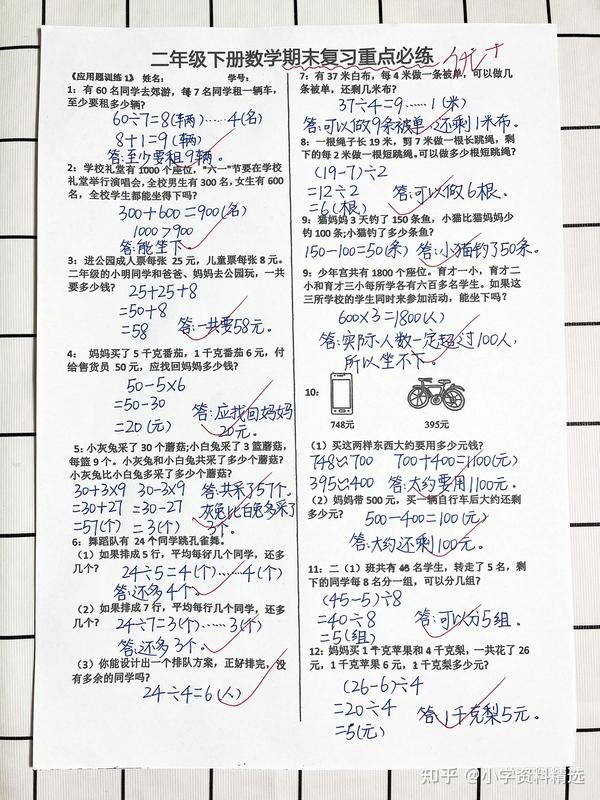 二年级下册数学期末复习重点必练
优+
《应用题训练1》 姓名: 学号:
1:有60名同学去郊游,每7名同学租一辆车,
至少要租多少辆?
60÷7=8(辆)……4(名)
8+1=9(辆)
答:至少要租9辆。
2:学校礼堂有1000个座位,"六一"节要在学校
礼堂举行演唱会,全校男生有300名,女生有600
名,全校学生都能坐得下吗?
300+600=900(名)
1000>900
答:能坐下。
3:进公园成人票每张 25元,儿童票每张8元。
二年级的小明同学和爸爸、妈妈去公园玩,一共
要多少钱?
25+25+8
=50+8
=58 答:一共要58元。
4: 妈妈买了5千克番茄,1千克番茄6元,付
给售货员 50元,应找回妈妈多少钱?
50-5×6
=50-30
=20(元) 答:应找回妈妈
20元。
5:小灰兔采了30个蘑菇;小白兔采了3篮蘑菇,
每篮9个。小灰兔和小白兔共采了多少个蘑菇?
小灰兔比小白兔多采了多少个蘑菇?
30+3×9 30-3×9 答:共采了57个。
=30+27 =30-27 灰兔比白兔多采了
=57(个) =3(个) 3个。
6:舞蹈队有 24个同学跳孔雀舞。
(1)如果排成5行,平均每行几个同学,还多
几个?
24÷5=4(个)……4(个)
答:还多4个。
(2)如果排成7行,平均每行几个同学,还多
几个?
24÷7=3(个)……3(个)
答:还多3个。
(3)你能设计出一个排队方案,正好排完,没
有多余的同学吗?
24÷4=6(人)
7:有37米白布,每4米做一条被单,可以做几
条被单,还剩几米布?
37÷4=9……1(米)
答:可以做9条被单,还剩1米布。
8:一根绳子长19米,剪7米做一根长跳绳,剩
下的每2米做一根短跳绳。可以做多少根短跳绳?
(19-7)÷2
=12÷2 答:可以做6根。
=6(根)
9:猫妈妈3天钓了150条鱼,小猫比猫妈妈少
钓100条;小猫钓了多少条鱼?
150-100=50(条) 答:小猫钓了50条。
9:少年宫共有1800个座位。育才一小,育才二
小和育才三小每所学各有六百多名学生。如果这
三所学校的学生同时来参加活动,能坐下吗?
600×3=1800(人)
答:实际人数一定超过100人,
所以坐不下。
10:
748元 395元
(1)买这两样东西大约要用多少元钱?
748≈700 700+400=1100(元)
395≈400 答:大约要用1100元。
(2)妈妈带500元,买一辆自行车后大约还剩
多少元?
500-400=100(元)
答:大约还剩100元。
11:二(1)班共有45名学生,转走了5名,剩
下的同学每8名分一组,可以分几组?
(45-5)÷8
=40÷8 答:可以分5组.
=5(组)
12:妈妈买1千克苹果和4千克梨,一共花了26
元,1千克苹果6元,1千克梨多少元?
(26-6)÷4
=20÷4 答:1千克梨5元。
=5(元)
知乎 @小学资料精选